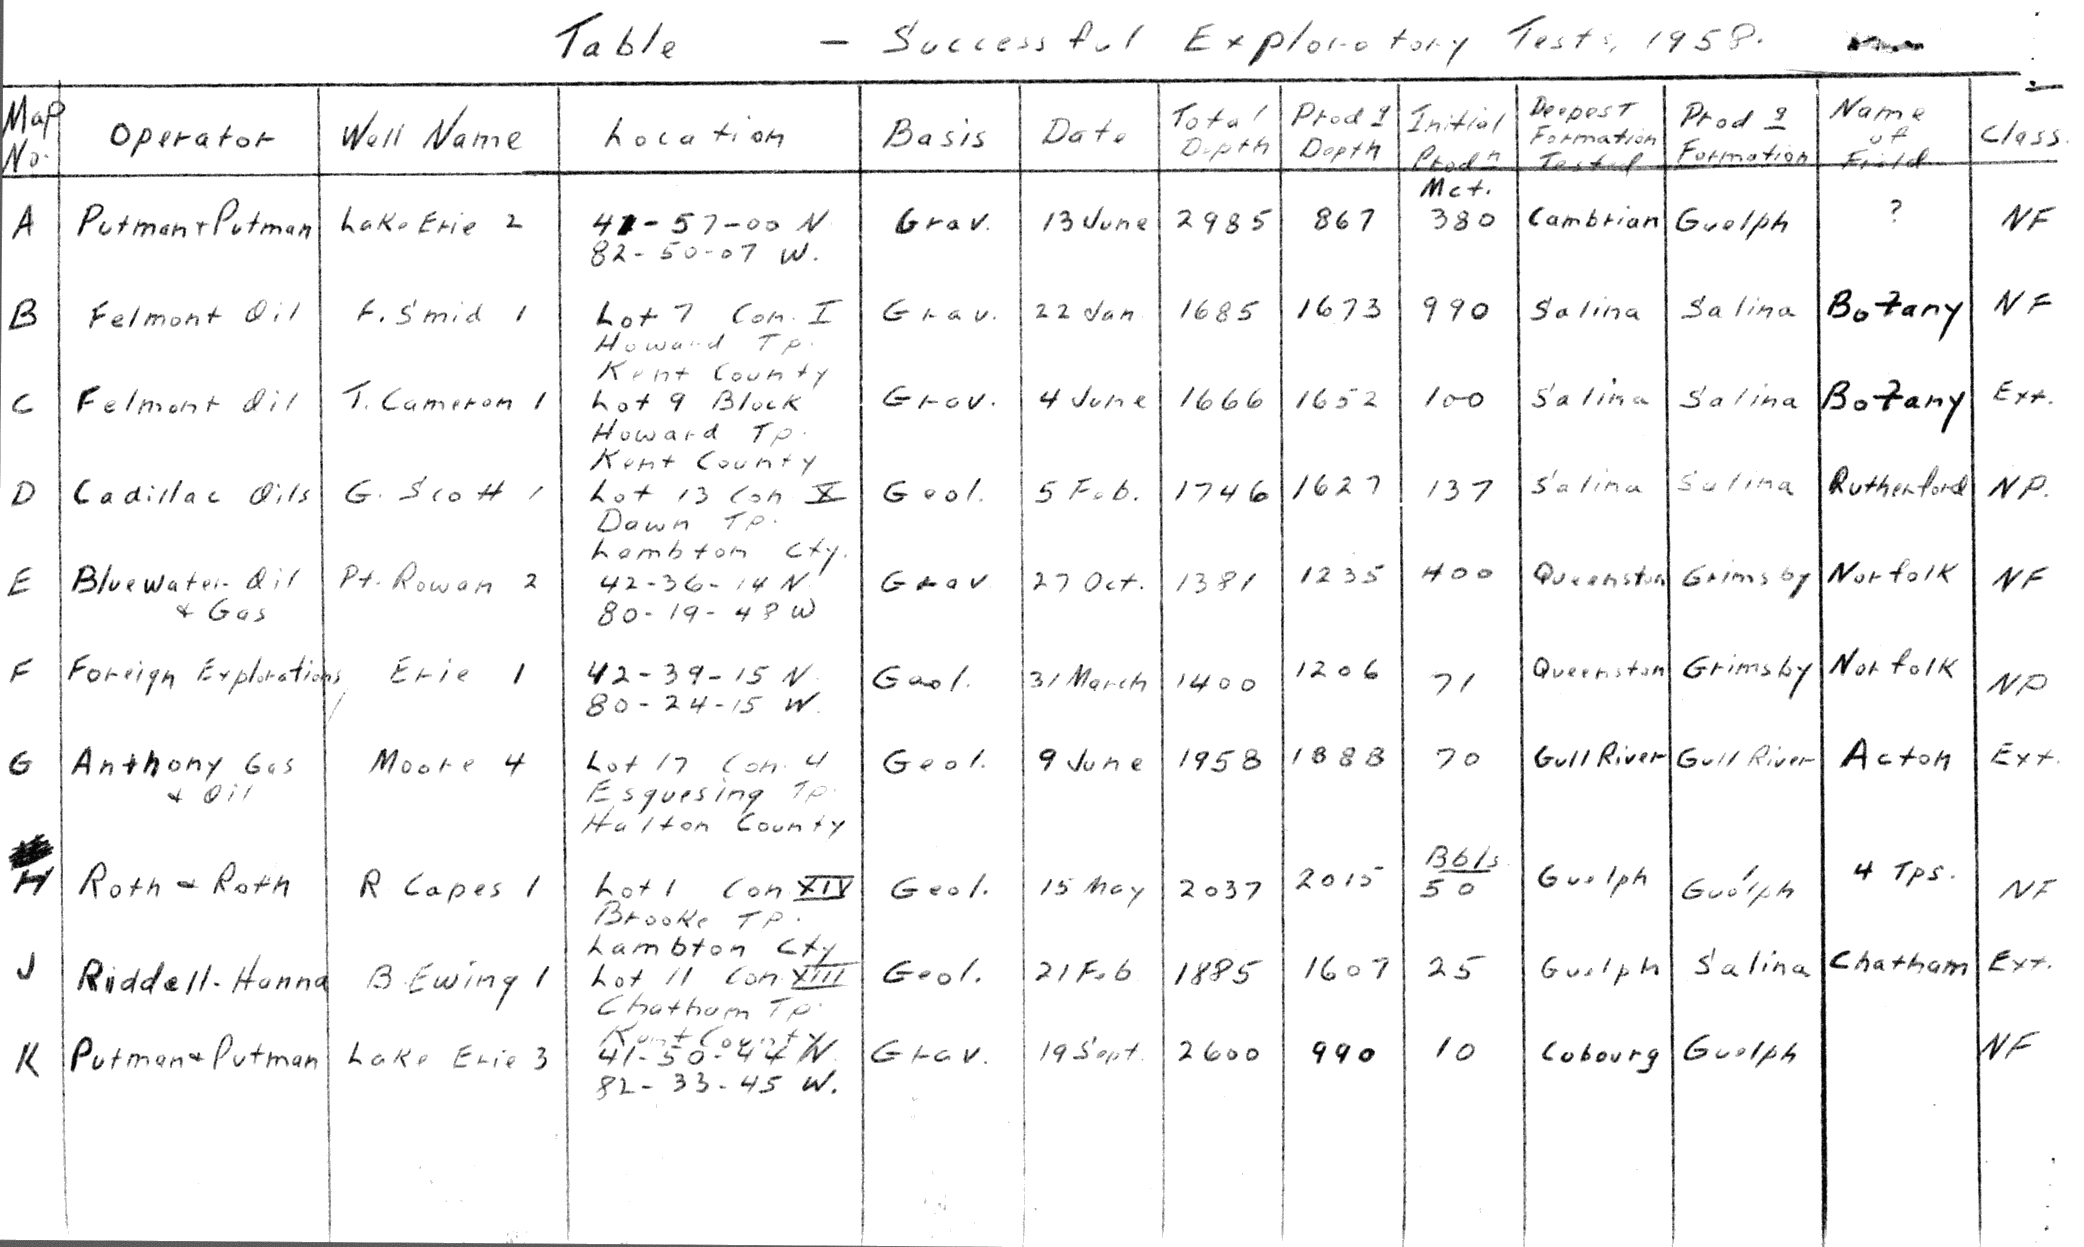 Table — Successful Exploratory Tests, 1958.
Map No. Operator Well Name Location Basis Date Total Depth Prod g Depth Initial Prod n Deepest Formation Tested Prod g Formation Name of Field Class.
Mcf.
A Putman + Putman Lake Erie 2 41-57-00 N. Grav. 13 June 2985 867 380 Cambrian Guelph ? NF
82-50-07 W.
B Felmont Oil F. Smid 1 Lot 7 Con. I Grav. 22 Jan 1685 1673 990 Salina Salina Botany NF
Howard Tp.
Kent County
C Felmont Oil T. Cameron 1 Lot 9 Block Grav. 4 June 1666 1652 100 Salina Salina Botany Ext.
Howard Tp.
Kent County
D Cadillac Oils G. Scott 1 Lot 13 Con X Geol. 5 Feb. 1746 1627 137 Salina Salina Rutherford NP.
Dawn Tp.
Lambton Cty.
E Bluewater Oil Pt. Rowan 2 42-36-14 N. Grav 27 Oct. 1381 1235 400 Queenston Grimsby Norfolk NF
+ Gas 80-19-48 W
F Foreign Explorations Erie 1 42-39-15 N. Geol. 31 March 1400 1206 71 Queenston Grimsby Norfolk NP
80-24-15 W.
G Anthony Gas Moore 4 Lot 17 Con. 4 Geol. 9 June 1958 1888 70 Gull River Gull River Acton Ext.
+ Oil Esquesing Tp.
Halton County
Bbls.
H Roth + Roth R Capes 1 Lot 1 Con XIV Geol. 15 May 2037 2015 50 Guelph Guelph 4 Tps. NF
Brooke Tp.
Lambton Cty
J Riddell-Hanna B. Ewing 1 Lot 11 Con. XIII Geol. 21 Feb 1885 1607 25 Guelph Salina Chatham Ext.
Chatham Tp.
Kent County
K Putman + Putman Lake Erie 3 41-50-44 N. Grav. 19 Sept. 2600 990 10 Cobourg Guelph NF
82-33-45 W.